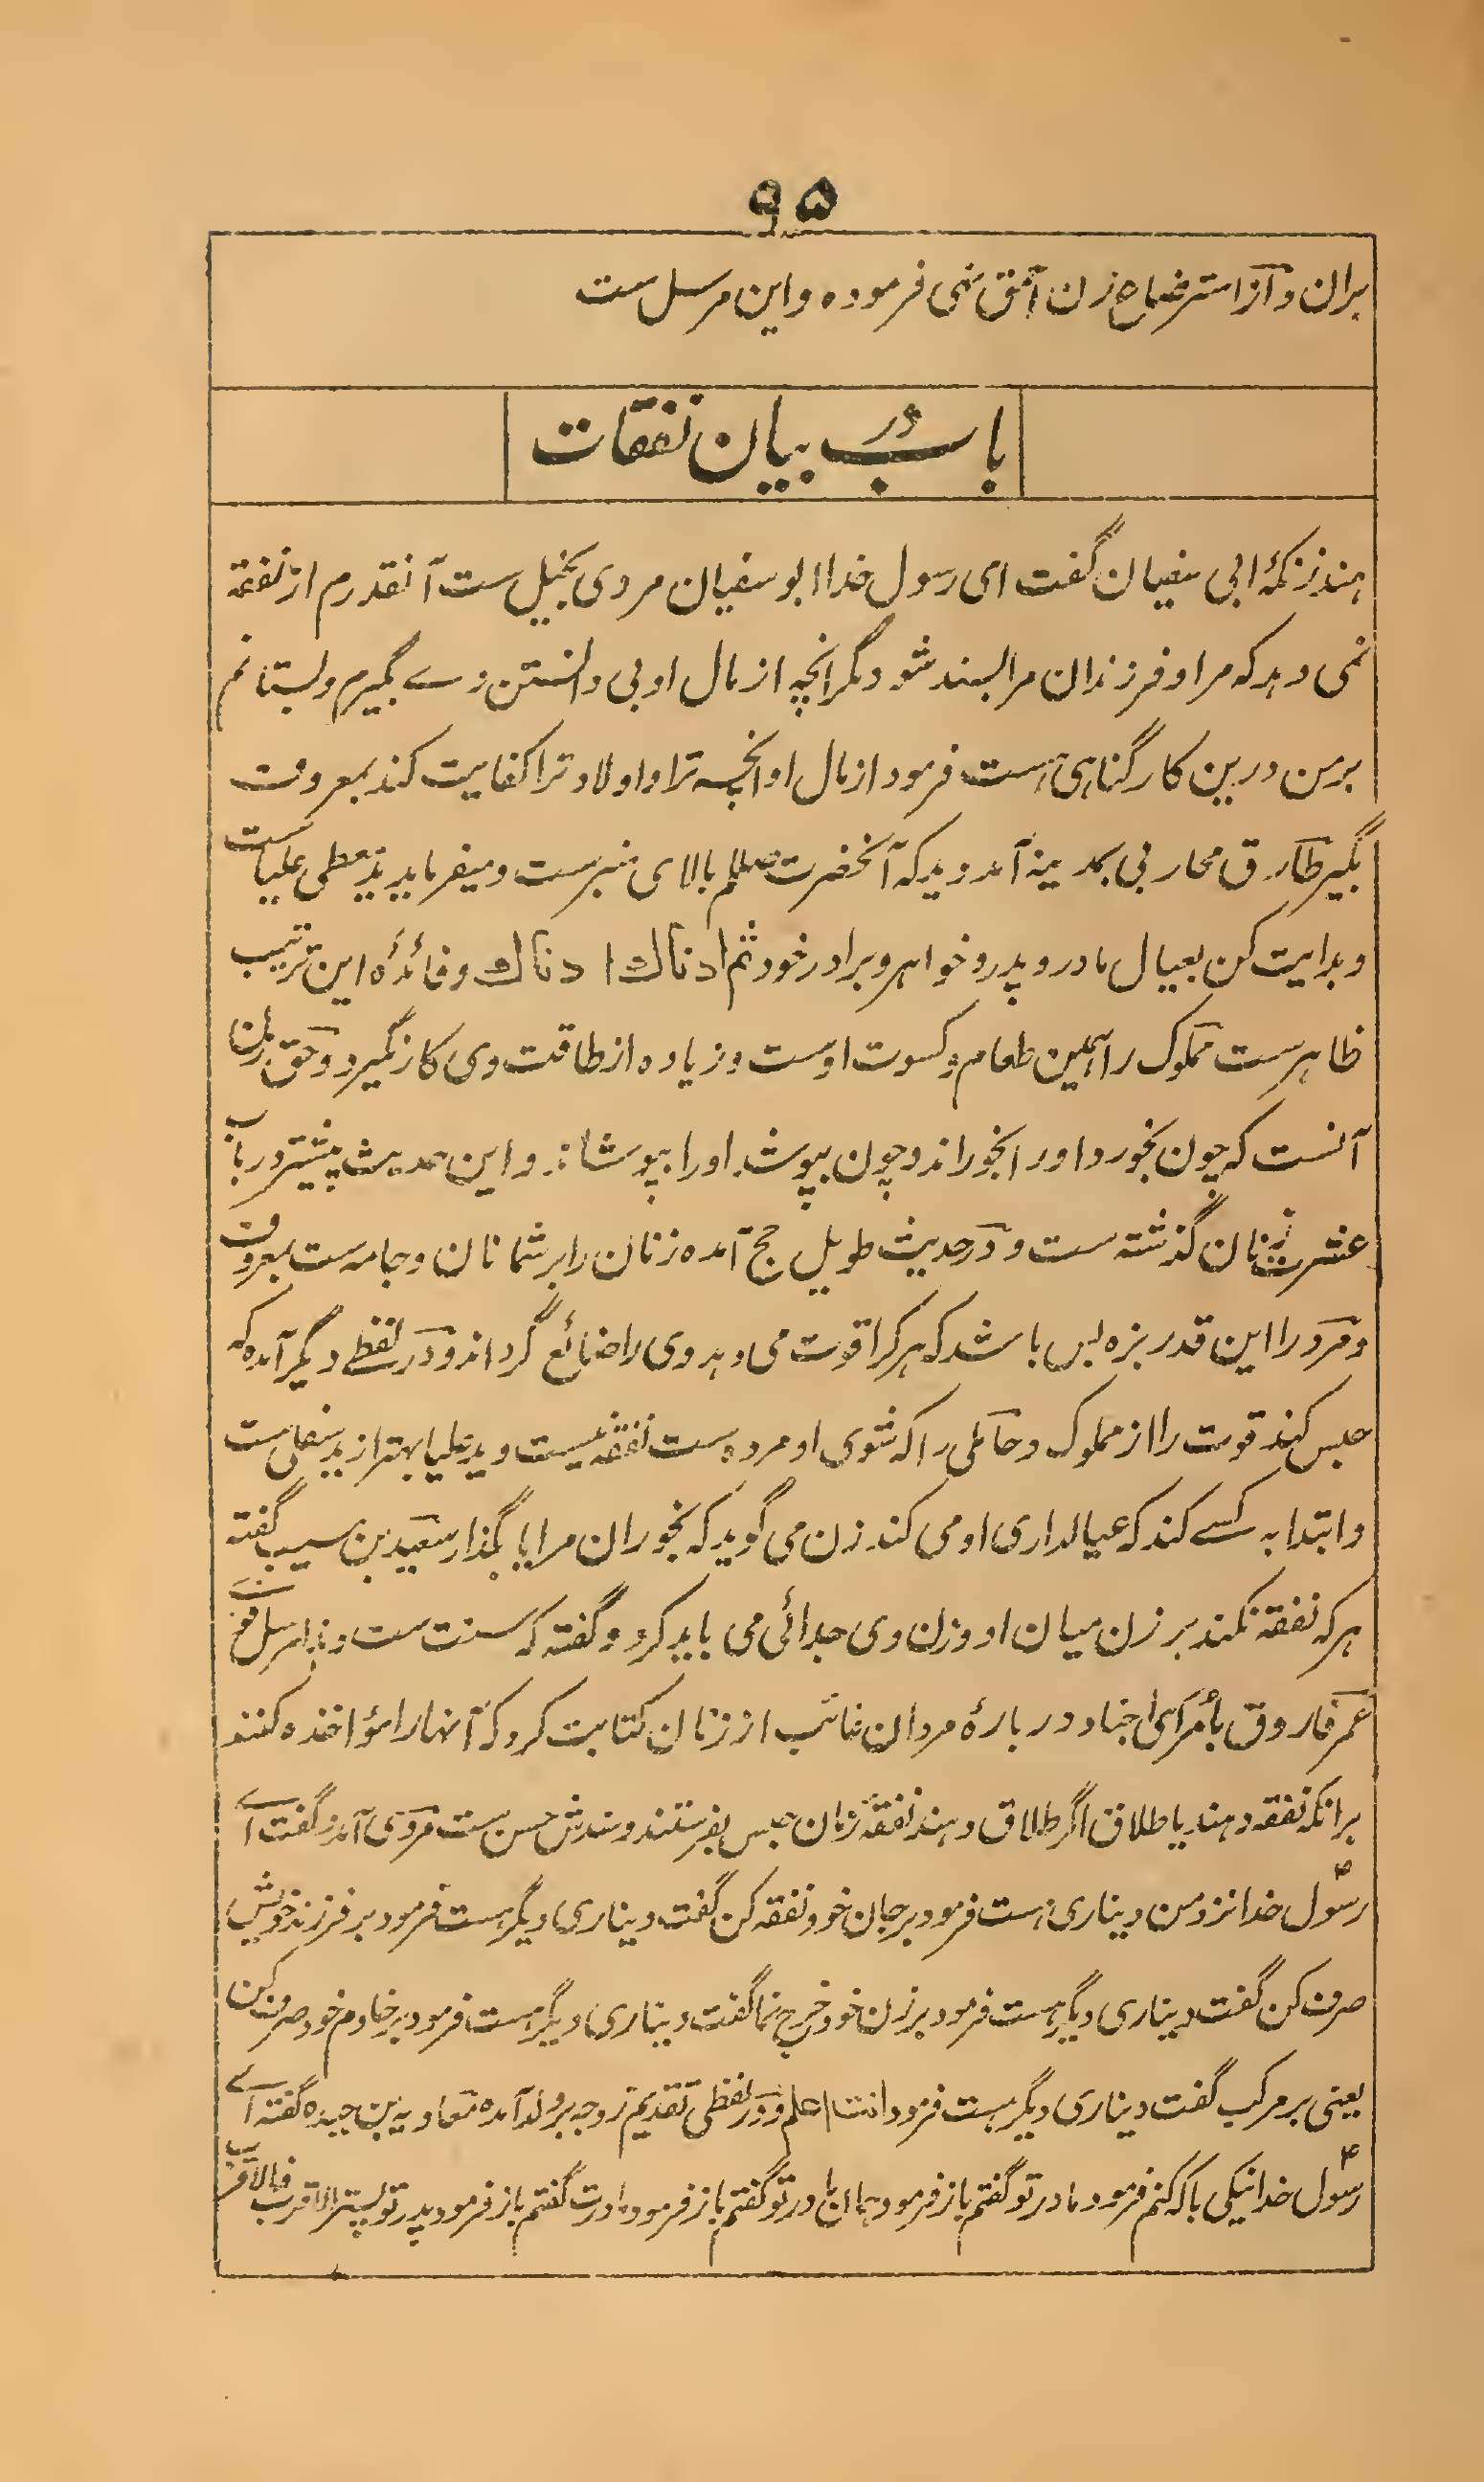 ۹۵
بران و از استرضاع زن احمق نهی فرموده و این مرسل ست
باب در بیان نفقات
هند زنکهٔ ابی سفیان گفت ای رسول خدا ابو سفیان مردی بخیل ست آنقدرم از نفقه
نمی دهد که مرا و فرزندان مرا بسند شود مگر انچه از مال او بی دانستن وے بگیرم و بستانم
بر من درین کار گناهی هست فرمود از مال او انچه ترا و اولاد ترا کفایت کند بمعروف
بگیر طارق محاربی بمدینه آمد و دید که آنحضرت صلعم بالای منبرست و میفرماید ید معطی علیاست
و بدایت کن بعیال مادر و پدر و خواهر و برادر خود ثم ادناك ادناك و فائدۀ این ترتیب
ظاهرست مملوک راهمین طعام و کسوت اوست و زیاده از طاقت وی کار نگیرد و حق زن
آنست که چون بخورد اورا بخوراند و چون بپوشد اورا بپوشاند و این حدیث پیشتر در باب
عشرت زنان گذشته ست و در حدیث طویل حج آمده زنان را بر شما نان و جامه ست بمعروف
و مرد را این قدر بزه بس باشد که هر کرا قوت می دهد وی را ضائع گرداند و در لفظے دیگر آمده که
حبس کند قوت را از مملوک و حاملی را که شوی او مرده ست نفقه نیست و ید علیا بهتر از ید سفلی ست
و ابتدا به کسے کند که عیالداری او می کند زن می گوید که بخوران مرا یا بگذار سعید بن مسیب گفته
هر که نفقه نکند بر زن میان او و زن وی جدائی می باید کرد و گفته که سنت ست و هذا مرسل قوی
عمر فاروق بأمرای اجناد در بارۀ مردان غائب از زنان کتابت کرد که آنهارا مؤاخذه کنند
برانکه نفقه دهند یا طلاق اگر طلاق دهند نفقۀ زمان حبس بفرستند و سندش حسن ست مردی آمد و گفت اے
رسول خدا نزد من دیناری هست فرمود بر جان خود نفقه کن گفت دیناری دیگر هست فرمود بر فرزند خویش
صرف کن گفت دیناری دیگر هست فرمود بر زن خود خرچ نما گفت دیناری دیگر هست فرمود بر خادم خود صرف کن
یعنی بر مرکب گفت دیناری دیگر هست فرمود انت اعلم و در لفظی تقدیم زوجه بر ولد آمده معاویه بن حیده گفته اے
رسول خدا نیکی با که کنم فرمود مادر تو گفتم باز فرمود همان مادر تو گفتم باز فرمود مادرت گفتم باز فرمود پدر تو پستر الاقرب فالاقرب